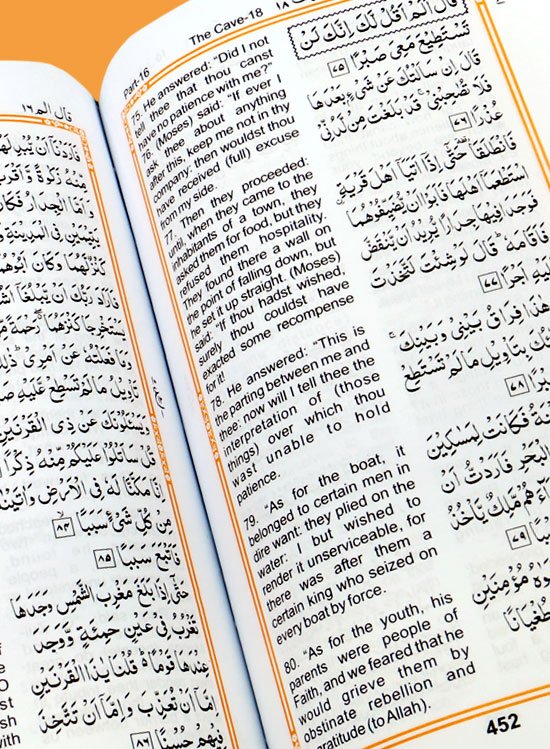 قال الم ١٦
فَاَرَدْنَاۤ اَنْ يُّبْدِلَهُ
مِّنْهُ زَكٰوةً وَّاَقْرَبَ
وَاَمَّا الْجِدَارُ فَكَانَ
يَتِيْمَيْنِ فِى الْمَدِيْنَةِ وَ
كَنْزٌ لَّهُمَا وَكَانَ اَبُوْهُمَا
فَاَرَادَ رَبُّكَ اَنْ يَّبْلُغَاۤ اَشُ
يَسْتَخْرِجَا كَنْزَهُمَا رَحْمَةً مِّ
وَمَا فَعَلْتُهٗ عَنْ اَمْرِىْ ذٰلِكَ
تَاْوِيْلُ مَا لَمْ تَسْطِعْ عَّلَيْهِ صَ
يَسْـَٔلُوْنَكَ عَنْ ذِى الْقَرْنَيْنِ
قُلْ سَاَتْلُوْا عَلَيْكُمْ مِّنْهُ ذِكْرًا
اِنَّا مَكَّنَّا لَهٗ فِى الْاَرْضِ وَاٰتَيْنٰهُ
مِنْ كُلِّ شَىْءٍ سَبَبًا ٨٤
فَاَتْبَعَ سَبَبًا ٨٥
حَتّٰۤى اِذَا بَلَغَ مَغْرِبَ الشَّمْسِ وَجَدَهَا
تَغْرُبُ فِىْ عَيْنٍ حَمِئَةٍ وَّوَجَدَ
عِنْدَهَا قَوْمًا قُلْنَا يٰذَا الْقَرْنَيْنِ
اِمَّاۤ اَنْ تُعَذِّبَ وَاِمَّاۤ اَنْ تَتَّخِذَ
فِيْهِمْ حُسْنًا ٨٦
Part-16 The Cave-18 ١٨
75. He answered: "Did I not
tell thee that thou canst
have no patience with me?"
76. (Moses) said: "If ever I
ask thee about anything
after this, keep me not in thy
company: then wouldst thou
have received (full) excuse
from my side.
77. Then they proceeded:
until, when they came to the
inhabitants of a town, they
asked them for food, but they
refused them hospitality.
They found there a wall on
the point of falling down, but
he set it up straight. (Moses)
said: "If thou hadst wished,
surely thou couldst have
exacted some recompense
for it!"
78. He answered: "This is
the parting between me and
thee: now will I tell thee the
interpretation of (those
things) over which thou
wast unable to hold
patience.
79. "As for the boat, it
belonged to certain men in
dire want: they plied on the
water: I but wished to
render it unserviceable, for
there was after them a
certain king who seized on
every boat by force.
80. "As for the youth, his
parents were people of
Faith, and we feared that he
would grieve them by
obstinate rebellion and
gratitude (to Allah).
قَالَ اَلَمْ اَقُلْ لَّكَ اِنَّكَ لَنْ
تَسْتَطِيْعَ مَعِىَ صَبْرًا ٧٥
قَالَ اِنْ سَاَلْتُكَ عَنْ شَىْءٍۭ بَعْدَهَا
فَلَا تُصٰحِبْنِىْ قَدْ بَلَغْتَ مِنْ لَّدُنِّىْ
عُذْرًا ٧٦
فَانْطَلَقَا حَتّٰۤى اِذَاۤ اَتَيَاۤ اَهْلَ قَرْيَةِ
اسْتَطْعَمَاۤ اَهْلَهَا فَاَبَوْا اَنْ يُّضَيِّفُوْهُمَا
فَوَجَدَا فِيْهَا جِدَارًا يُّرِيْدُ اَنْ يَّنْقَضَّ
فَاَقَامَهٗ قَالَ لَوْ شِئْتَ لَتَّخَذْتَ
عَلَيْهِ اَجْرًا ٧٧
هٰذَا فِرَاقُ بَيْنِىْ وَبَيْنِكَ
كَ بِتَاْوِيْلِ مَا لَمْ تَسْتَطِعْ
٧٨
نَةُ فَكَانَتْ لِمَسٰكِيْنَ
الْبَحْرِ فَاَرَدْتُّ اَنْ
ءَهُمْ مَّلِكٌ يَّاْخُذُ
٧٩
وٰهُ مُؤْمِنَيْنِ
طُغْيَانًا
452